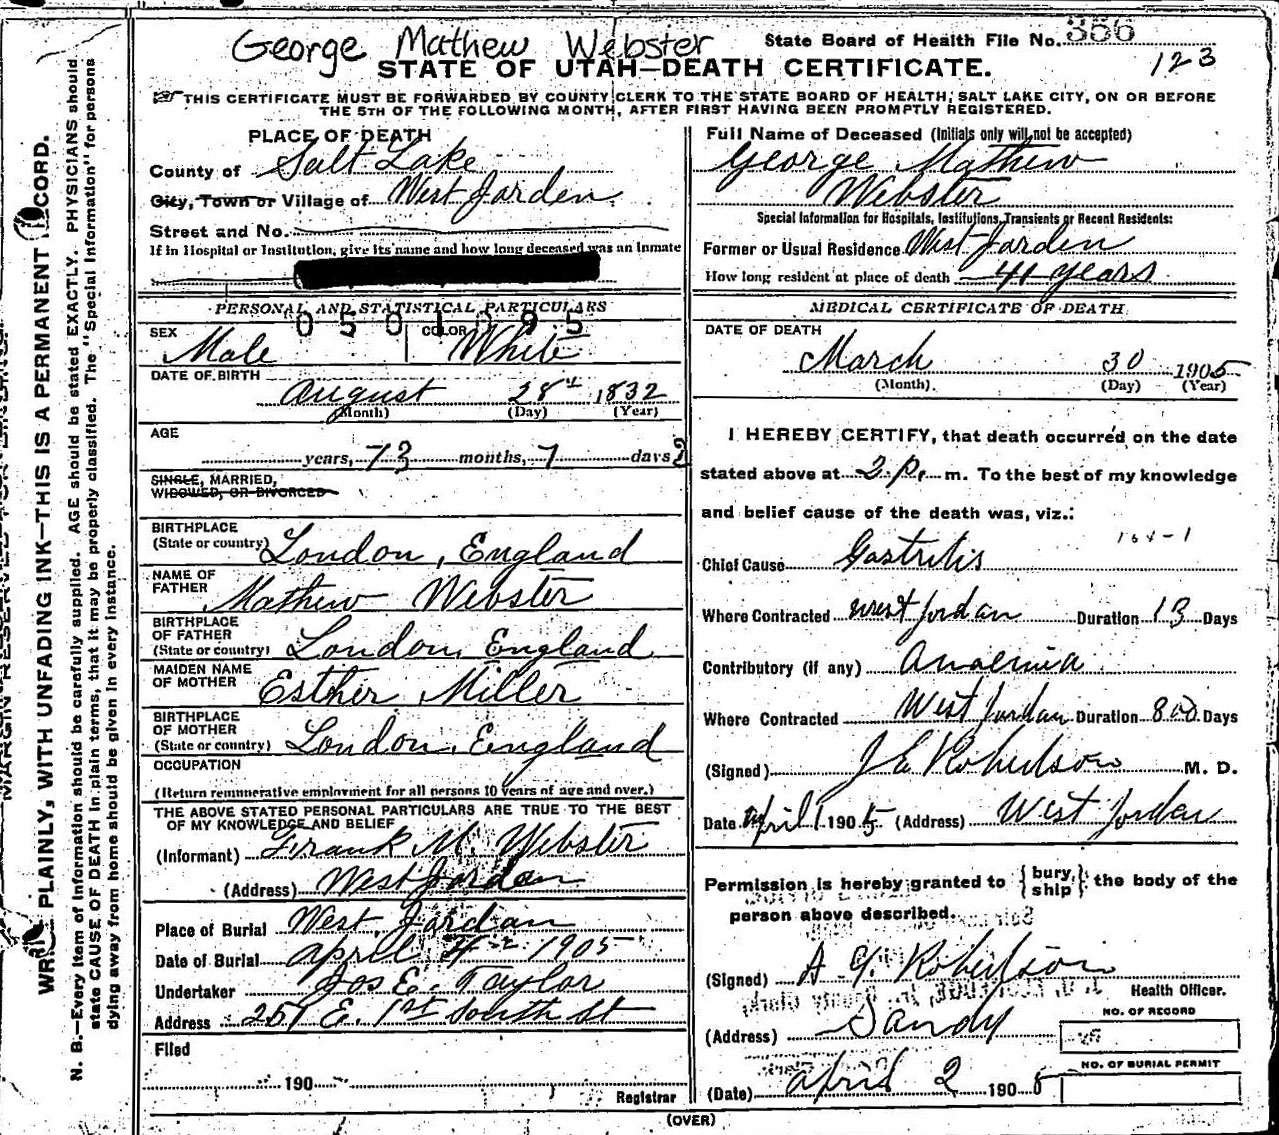 George Mathew Webster
State Board of Health File No. 356
123
STATE OF UTAH—DEATH CERTIFICATE.
THIS CERTIFICATE MUST BE FORWARDED BY COUNTY CLERK TO THE STATE BOARD OF HEALTH, SALT LAKE CITY, ON OR BEFORE
THE 5TH OF THE FOLLOWING MONTH, AFTER FIRST HAVING BEEN PROMPTLY REGISTERED.
PLACE OF DEATH
County of Salt Lake
City, Town or Village of West Jorden
Street and No.
If in Hospital or Institution, give its name and how long deceased was an inmate
PERSONAL AND STATISTICAL PARTICULARS
0501395
SEX COLOR
Male White
DATE OF BIRTH
August 28th 1832
(Month) (Day) (Year)
AGE
years, 73 months, 7 days 2
SINGLE, MARRIED,
WIDOWED, OR DIVORCED
BIRTHPLACE
(State or country) London, England
NAME OF
FATHER Mathew Webster
BIRTHPLACE
OF FATHER
(State or country) London, England
MAIDEN NAME
OF MOTHER Esther Miller
BIRTHPLACE
OF MOTHER
(State or country) London, England
OCCUPATION
(Return remunerative employment for all persons 10 years of age and over.)
THE ABOVE STATED PERSONAL PARTICULARS ARE TRUE TO THE BEST
OF MY KNOWLEDGE AND BELIEF
(Informant) Frank M. Webster
(Address) West Jordan
Place of Burial West Jordan
Date of Burial April 1905
Undertaker Jos E. Taylor
Address 257 E. 1st South St
Filed
190
Registrar
Full Name of Deceased (Initials only will not be accepted)
George Mathew
Webster
Special Information for Hospitals, Institutions, Transients or Recent Residents:
Former or Usual Residence West Jorden
How long resident at place of death 41 years
MEDICAL CERTIFICATE OF DEATH
DATE OF DEATH
March 30 1905
(Month) (Day) (Year)
I HEREBY CERTIFY, that death occurred on the date
stated above at 2 p. m. To the best of my knowledge
and belief cause of the death was, viz.:
Chief Cause Gastritis
Where Contracted West Jordan Duration 13 Days
Contributory (if any) Anaemia
Where Contracted West Jordan Duration 800 Days
(Signed) J E Robertson M. D.
Date April 1 1905 (Address) West Jordan
Permission is hereby granted to {bury, ship} the body of the
person above described.
(Signed) A. Y. Robertson
Health Officer.
(Address) Sandy
NO. OF RECORD
NO. OF BURIAL PERMIT
(Date) April 2 1905
(OVER)
WRITE PLAINLY, WITH UNFADING INK—THIS IS A PERMANENT RECORD.
N. B.—Every item of information should be carefully supplied. AGE should be stated EXACTLY. PHYSICIANS should
state CAUSE OF DEATH in plain terms, that it may be properly classified. The "Special Information" for persons
dying away from home should be given in every instance.